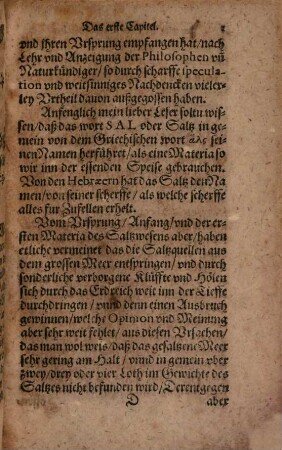 Das erste Capitel.
vnd jhren Vrsprung empfangen hat / nach
Lehr vnd Anzeigung der Philosophen vñ
Naturkündiger / so durch scharffe specula-
tion vnd weitsinniges Nachdencken vieler-
ley Vrtheil dauon außgegossen haben.
Anfenglich mein lieber Leser soltu wis-
sen / daß das wort SAL oder Saltz in ge-
mein von dem Griechischen wort ἅλς sei-
nen Namen herführet / als eine Materia so
wir inn der essenden Speise gebrauchen.
Von den Hebræern hat das Saltz den Na-
men / von seiner scherffe / als welche scherffe
alles für Zufellen erhelt.
Vom Vrsprung / Anfang / vnd der er-
sten Materia des Saltzwesens aber / haben
etliche vermeinet das die Saltzquellen aus
dem grossen Meer entspringen / vnd durch
sonderliche verborgene Klüffte vnd Hölen
sich durch das Erdreich weit inn der Tieffe
durchdringen / vnnd denn einen Ausbruch
gewinnen / welche Opinion vnd Meinung
aber sehr weit fehlet / aus diesen Vrsachen /
das man wol weis / daß das gesaltzene Meer
sehr gering am Halt / vnnd in gemein vber
zwey / drey oder vier Loth im Gewichte des
Saltzes nicht befunden wird / Derentgegen
D aber